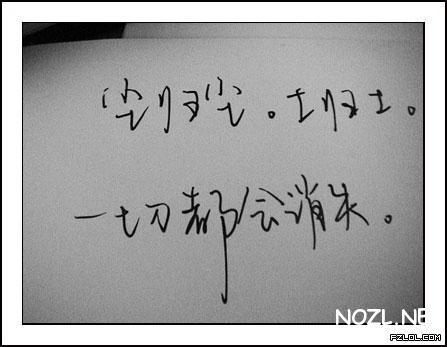 尘归尘。土归土。
一切都会消失。
NOZL.NE
PZLOL.COM